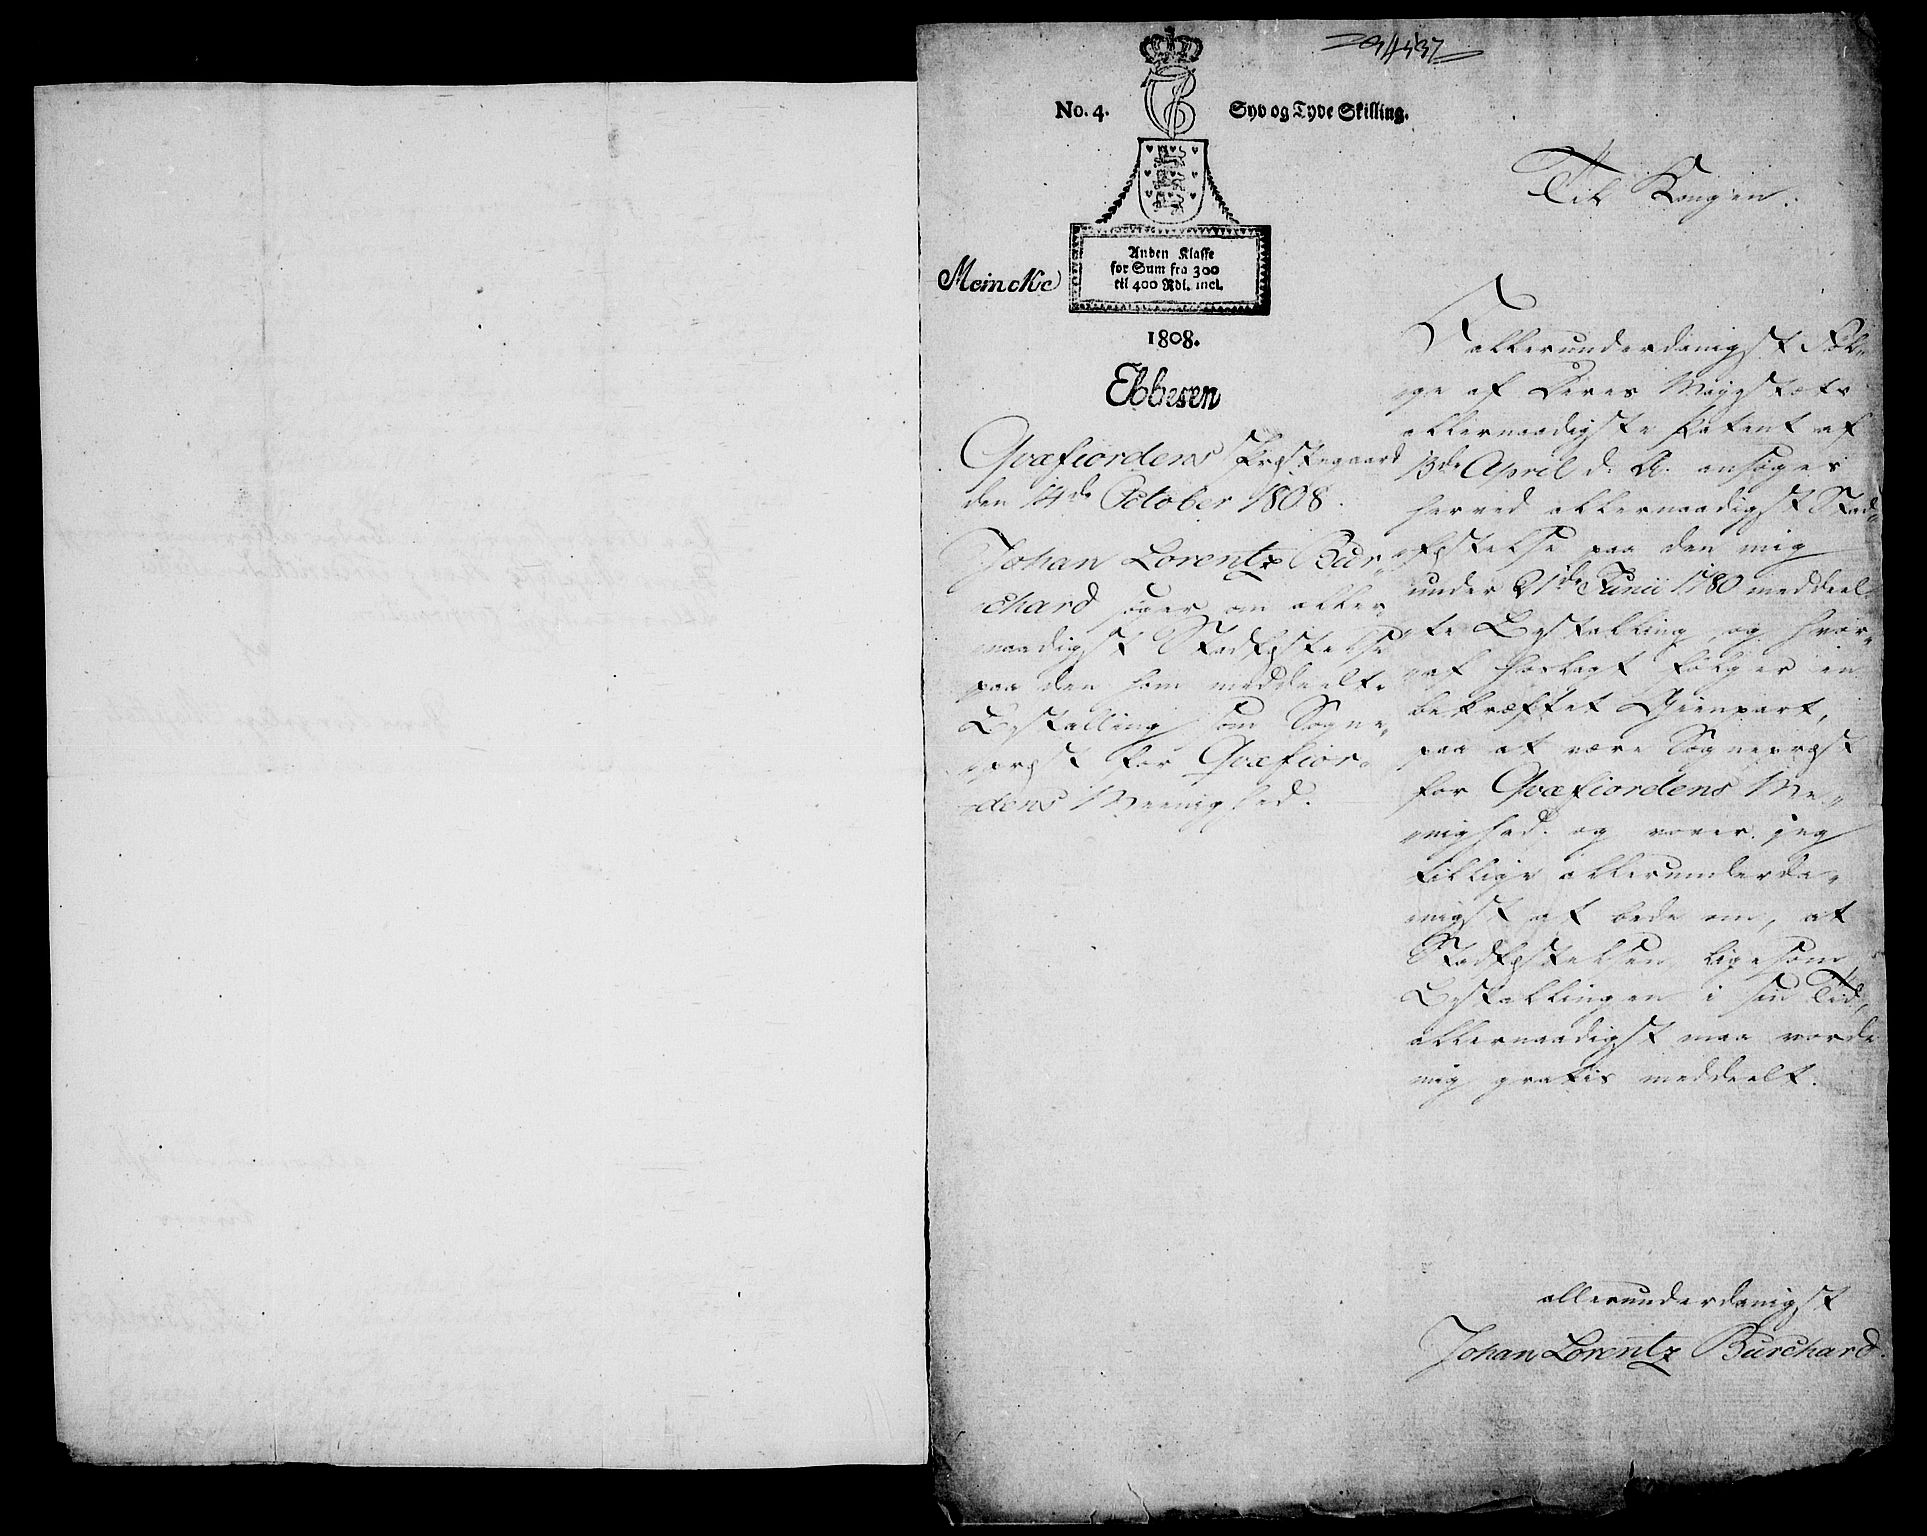 No. 4.
Syv og Tyve Skilling.
Anden Klasse
for Sum fra 300
til 400 Rdl. incl.
Meincke
1808.
Ebbesen
Qvæfiordens Præstegaard
den 14de October 1808.
Johan Lorentz Bur-
chard søger om aller
naadigst Stadfæstelse
paa den ham meddeelte
Bestalling som Sogne-
præst for Qvæfior-
dens Meenighed.
Til Kongen.
I allerunderdanigst Føl-
ge af Deres Majestæts
allernaadigste Patent af
13de April d. A. ansøges
herved allernaadigst Stad-
fæstelse paa den mig
under 21de Junii 1780 meddeel-
te Bestalling, og hvor-
af hoslagt følger en
bekræftet Gienpart,
paa at være Sognepræst
for Qvæfiordens Me-
nighed. og vover jeg
tillige allerunderda-
nigst at bede om, at
Stadfæstelsen, ligesom
Bestallingen i sin Tid,
allernaadigst maa vorde
mig gratis meddeelt.
allerunderdanigst
Johan Lorentz Burchard.